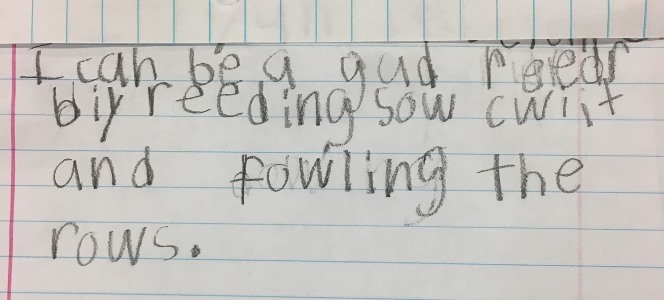 I can be a gud reedr
biy reeding sow cwiit
and fowling the
rows.